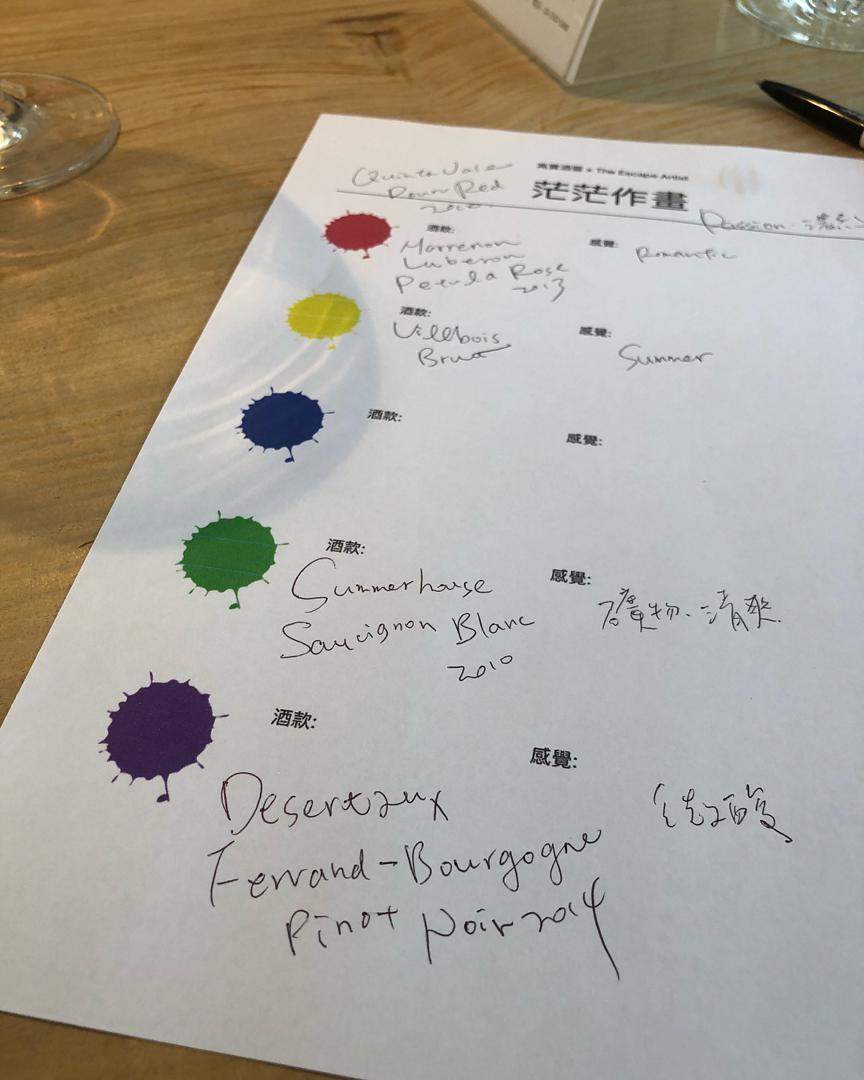 x The Escape Artist
茫茫作畫
Quinta Vale
Red
2010
Passion
酒款:
感覺:
Marrenon
Luberon
Petula Rose
2013
Romantic
酒款:
感覺:
Villebois
Brut
Summer
酒款:
感覺:
酒款:
感覺:
Summerhouse
Sauvignon Blanc
2010
礦物、清爽
酒款:
感覺:
Desertaux
Ferrand-Bourgogne
Pinot Noir 2014